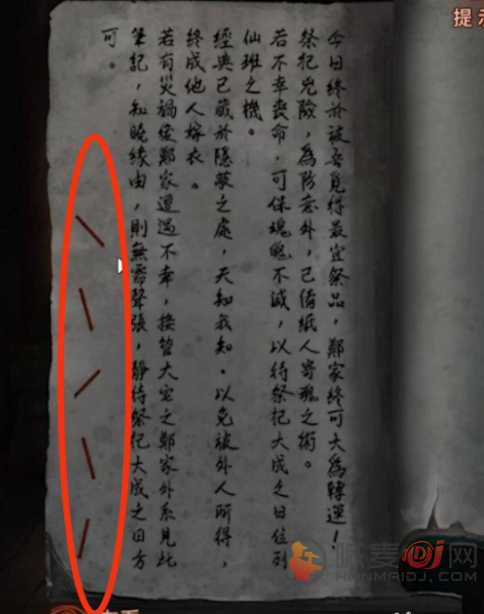 今日終於被吾覓得最宜祭品，鄭家終可大為轉運！
祭祀兇險，為防意外，已備紙人寄魂之術。
若不幸喪命，可保魂魄不滅，以待祭祀大成之日位列
仙班之機。
經典已藏於隱蔽之處，天知我知，以免被外人所得，
終成他人嫁衣。
若有災禍致鄭家遭遇不幸，接管大宅之鄭家外系見此
筆記，知曉緣由，則無需聲張，靜待祭祀大成之日方
可。
提示
HANMAIDJ.COM